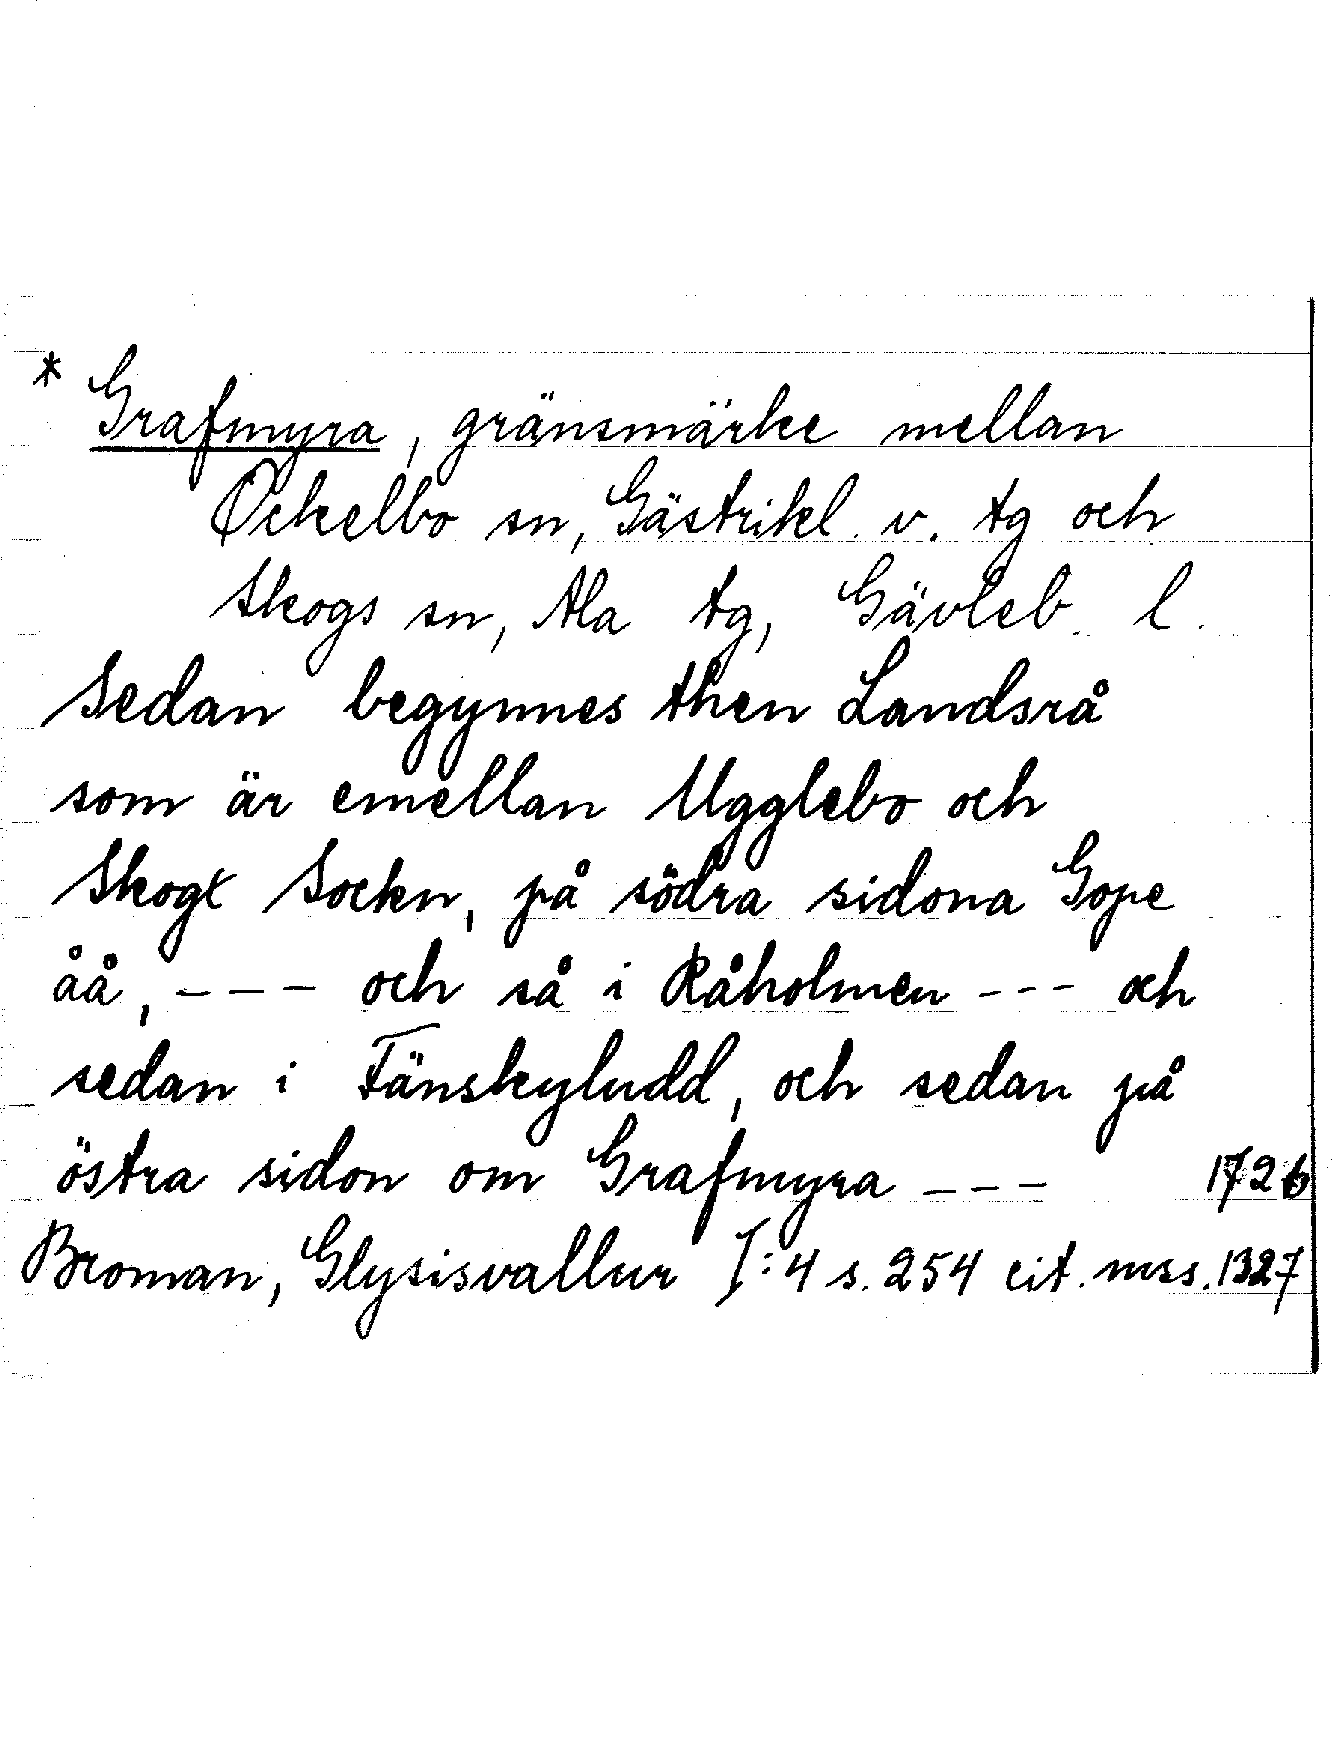 * Grafmyra, gränsmärke mellan
Ockelbo sn, Gästrikl. v. tg och
Skogs sn, Ala tg, Gävleb. l.
Sedan begynnes then Landsrå
som är emellan Ugglebo och
Skogx Sockn, på södra sidona Gope
åå, --- och så i Råholmen --- och
sedan i Tänskyludd, och sedan på
östra sidon om Grafmyra --- 1726
Broman, Glysisvallur I:4 s. 254 cit. mss. 1327